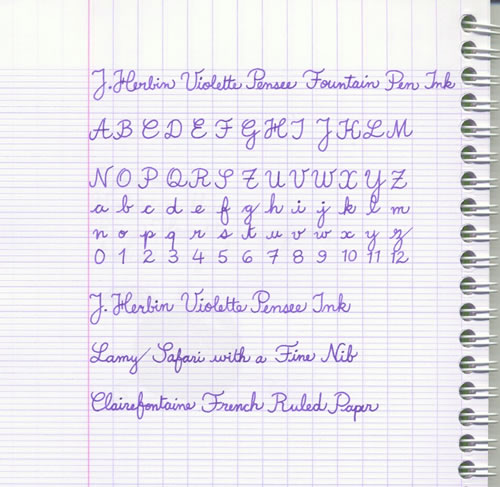 J. Herbin Violette Pensee Fountain Pen Ink
A B C D E F G H I J K L M
N O P Q R S T U V W X Y Z
a b c d e f g h i j k l m
n o p q r s t u v w x y z
0 1 2 3 4 5 6 7 8 9 10 11 12
J. Herbin Violette Pensee Ink
Lamy Safari with a Fine Nib
Clairefontaine French Ruled Paper